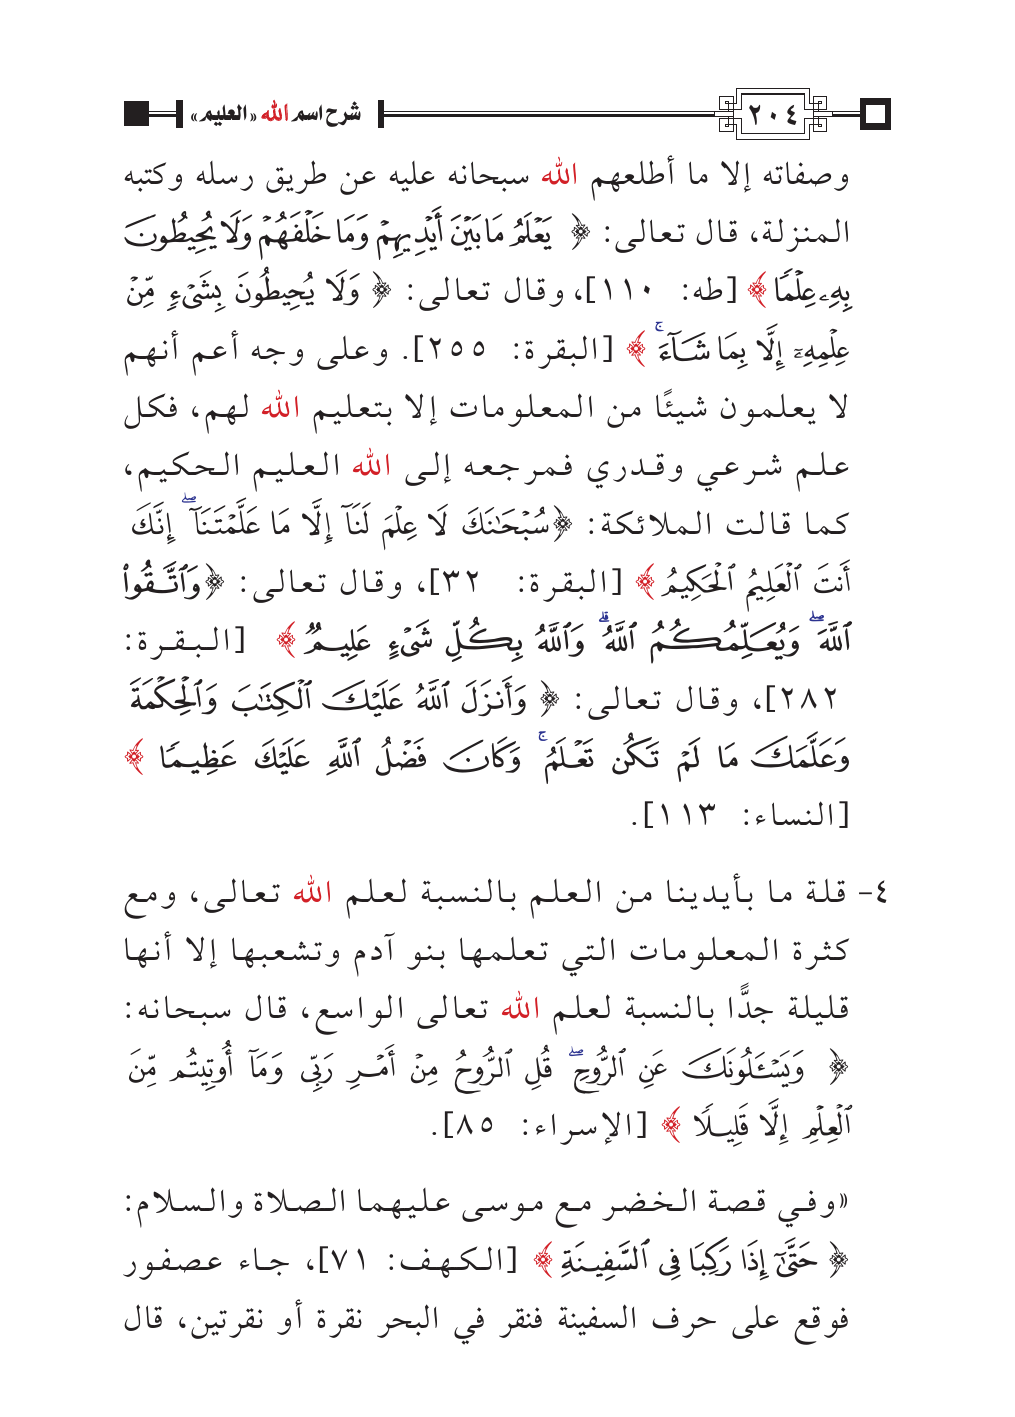 ٢٠٤
شرح اسم الله «العليم»
وصفاته إلا ما أطلعهم الله سبحانه عليه عن طريق رسله وكتبه
المنزلة، قال تعالى: ﴿ يَعْلَمُ مَا بَيْنَ أَيْدِيهِمْ وَمَا خَلْفَهُمْ وَلَا يُحِيطُونَ
بِهِۦ عِلْمًا ﴾ [طه: ١١٠]، وقال تعالى: ﴿ وَلَا يُحِيطُونَ بِشَىْءٍ مِّنْ
عِلْمِهِۦٓ إِلَّا بِمَا شَآءَ ۚ ﴾ [البقرة: ٢٥٥]. وعلى وجه أعم أنهم
لا يعلمون شيئًا من المعلومات إلا بتعليم الله لهم، فكل
علم شرعي وقدري فمرجعه إلى الله العليم الحكيم،
كما قالت الملائكة: ﴿سُبْحَٰنَكَ لَا عِلْمَ لَنَآ إِلَّا مَا عَلَّمْتَنَآ ۖ إِنَّكَ
أَنتَ ٱلْعَلِيمُ ٱلْحَكِيمُ ﴾ [البقرة: ٣٢]، وقال تعالى: ﴿وَٱتَّقُوا۟
ٱللَّهَ ۖ وَيُعَلِّمُكُمُ ٱللَّهُ ۗ وَٱللَّهُ بِكُلِّ شَىْءٍ عَلِيمٌ ﴾ [البقرة:
٢٨٢]، وقال تعالى: ﴿ وَأَنزَلَ ٱللَّهُ عَلَيْكَ ٱلْكِتَٰبَ وَٱلْحِكْمَةَ
وَعَلَّمَكَ مَا لَمْ تَكُن تَعْلَمُ ۚ وَكَانَ فَضْلُ ٱللَّهِ عَلَيْكَ عَظِيمًا ﴾
[النساء: ١١٣].
٤- قلة ما بأيدينا من العلم بالنسبة لعلم الله تعالى، ومع
كثرة المعلومات التي تعلمها بنو آدم وتشعبها إلا أنها
قليلة جدًّا بالنسبة لعلم الله تعالى الواسع، قال سبحانه:
﴿ وَيَسْـَٔلُونَكَ عَنِ ٱلرُّوحِ ۖ قُلِ ٱلرُّوحُ مِنْ أَمْرِ رَبِّى وَمَآ أُوتِيتُم مِّنَ
ٱلْعِلْمِ إِلَّا قَلِيلًا ﴾ [الإسراء: ٨٥].
«وفي قصة الخضر مع موسى عليهما الصلاة والسلام:
﴿ حَتَّىٰٓ إِذَا رَكِبَا فِى ٱلسَّفِينَةِ ﴾ [الكهف: ٧١]، جاء عصفور
فوقع على حرف السفينة فنقر في البحر نقرة أو نقرتين، قال